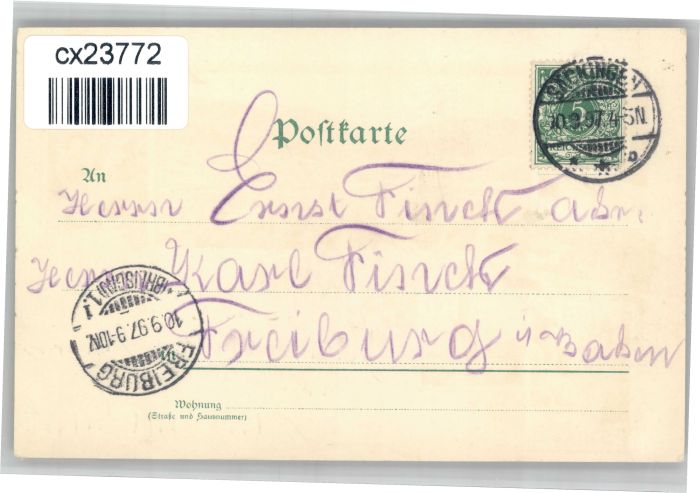 cx23772
SÄCKINGEN
10.9.97.4-5N.
5
Postkarte
An
Herrn Ernst Finck
Herrn Karl Finck
Freiburg i/Baden
FREIBURG (BREISGAU) 1.
10.9.97.9-10N.
Wohnung
(Straße und Hausnummer)